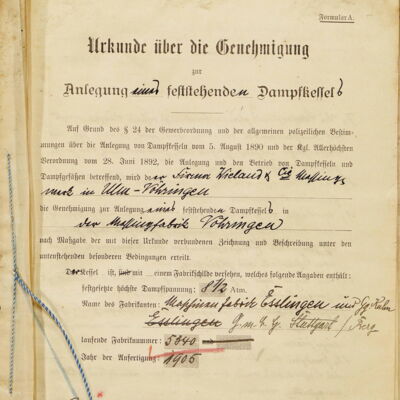 Formular A.
Urkunde über die Genehmigung
zur
Anlegung eines feststehenden Dampfkessels
Auf Grund des § 24 der Gewerbeordnung und der allgemeinen polizeilichen Bestim-
mungen über die Anlegung von Dampfkesseln vom 5. August 1890 und der Kgl. Allerhöchsten
Verordnung vom 28. Juni 1892, die Anlegung und den Betrieb von Dampfkesseln und
Dampfgefäßen betreffend, wird der Firma Wieland & Cie Messing-
werk in Ulm-Vöhringen
die Genehmigung zur Anlegung eines feststehenden Dampfkessels in
der Messingfabrik Vöhringen
nach Maßgabe der mit dieser Urkunde verbundenen Zeichnung und Beschreibung unter den
untenstehenden besonderen Bedingungen erteilt.
Der Kessel ist mit einem Fabrikschilde versehen, welches folgende Angaben enthält:
festgesetzte höchste Dampfspannung: 8 1/2 Atm.
Name des Fabrikanten: Maschinenfabrik Esslingen und Kuhn
Esslingen G.m.b.H. Stuttgart / Berg
laufende Fabriknummer: 5840
Jahr der Anfertigung: 1905